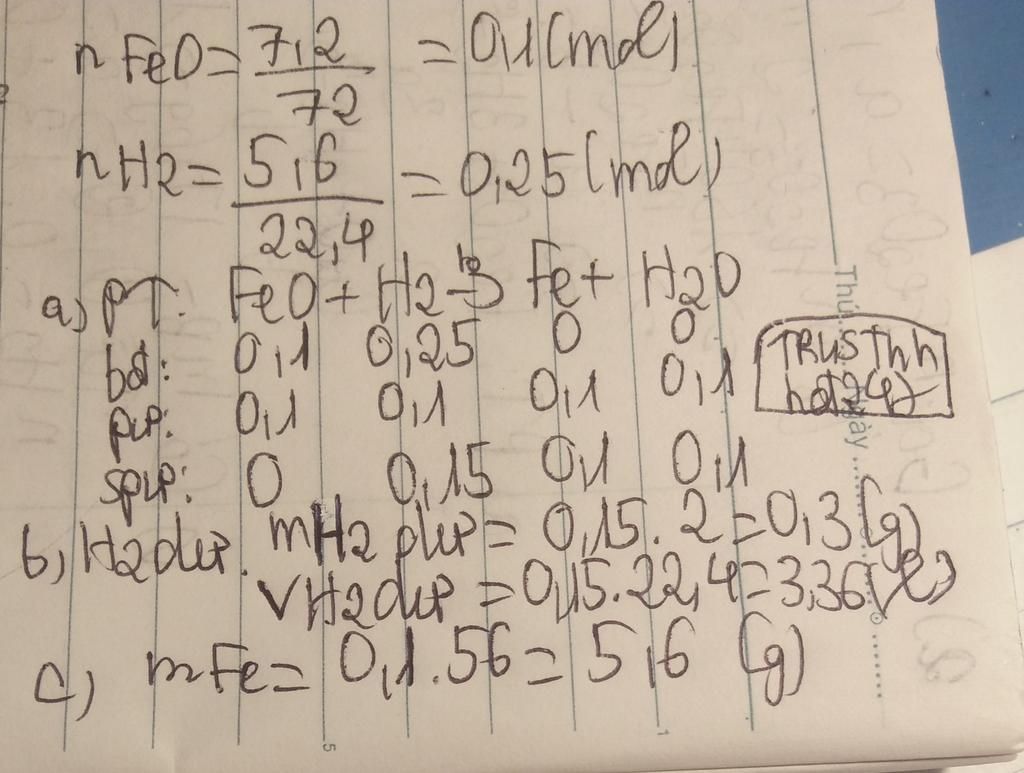 nFeO = 7,2 / 72 = 0,1 (mol)
nH2 = 5,6 / 22,4 = 0,25 (mol)
a) PT: FeO + H2 -to-> Fe + H2O
bđ: 0,1 0,25 0 0
pư: 0,1 0,1 0,1 0,1
spư: 0 0,15 0,1 0,1
b, H2 dư. mH2 dư = 0,15.2 = 0,3 (g)
VH2 dư = 0,15.22,4 = 3,36 (l)
c) mFe = 0,1.56 = 5,6 (g)
TRUSThh
Thứ
gày
5
1